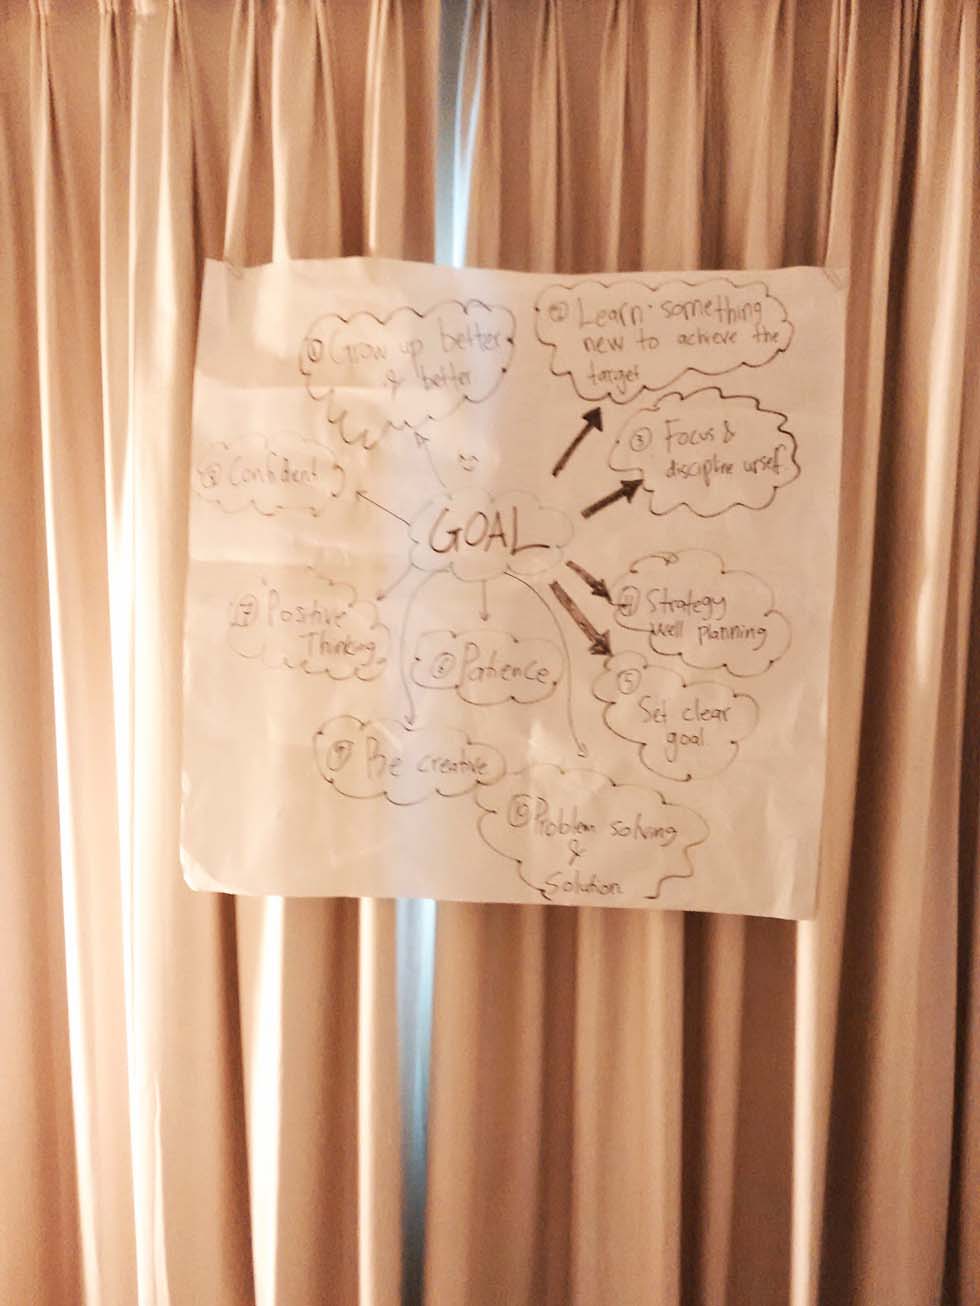 ① Grow up better
& better
② Learn something
new to achieve the
target
③ Focus &
discipline urself
⑧ Confident
GOAL
④ Strategy
Well planning
⑦ Positive
Thinking
Patience
⑤
Set clear
goal
Be creative
Problem solving
&
Solution